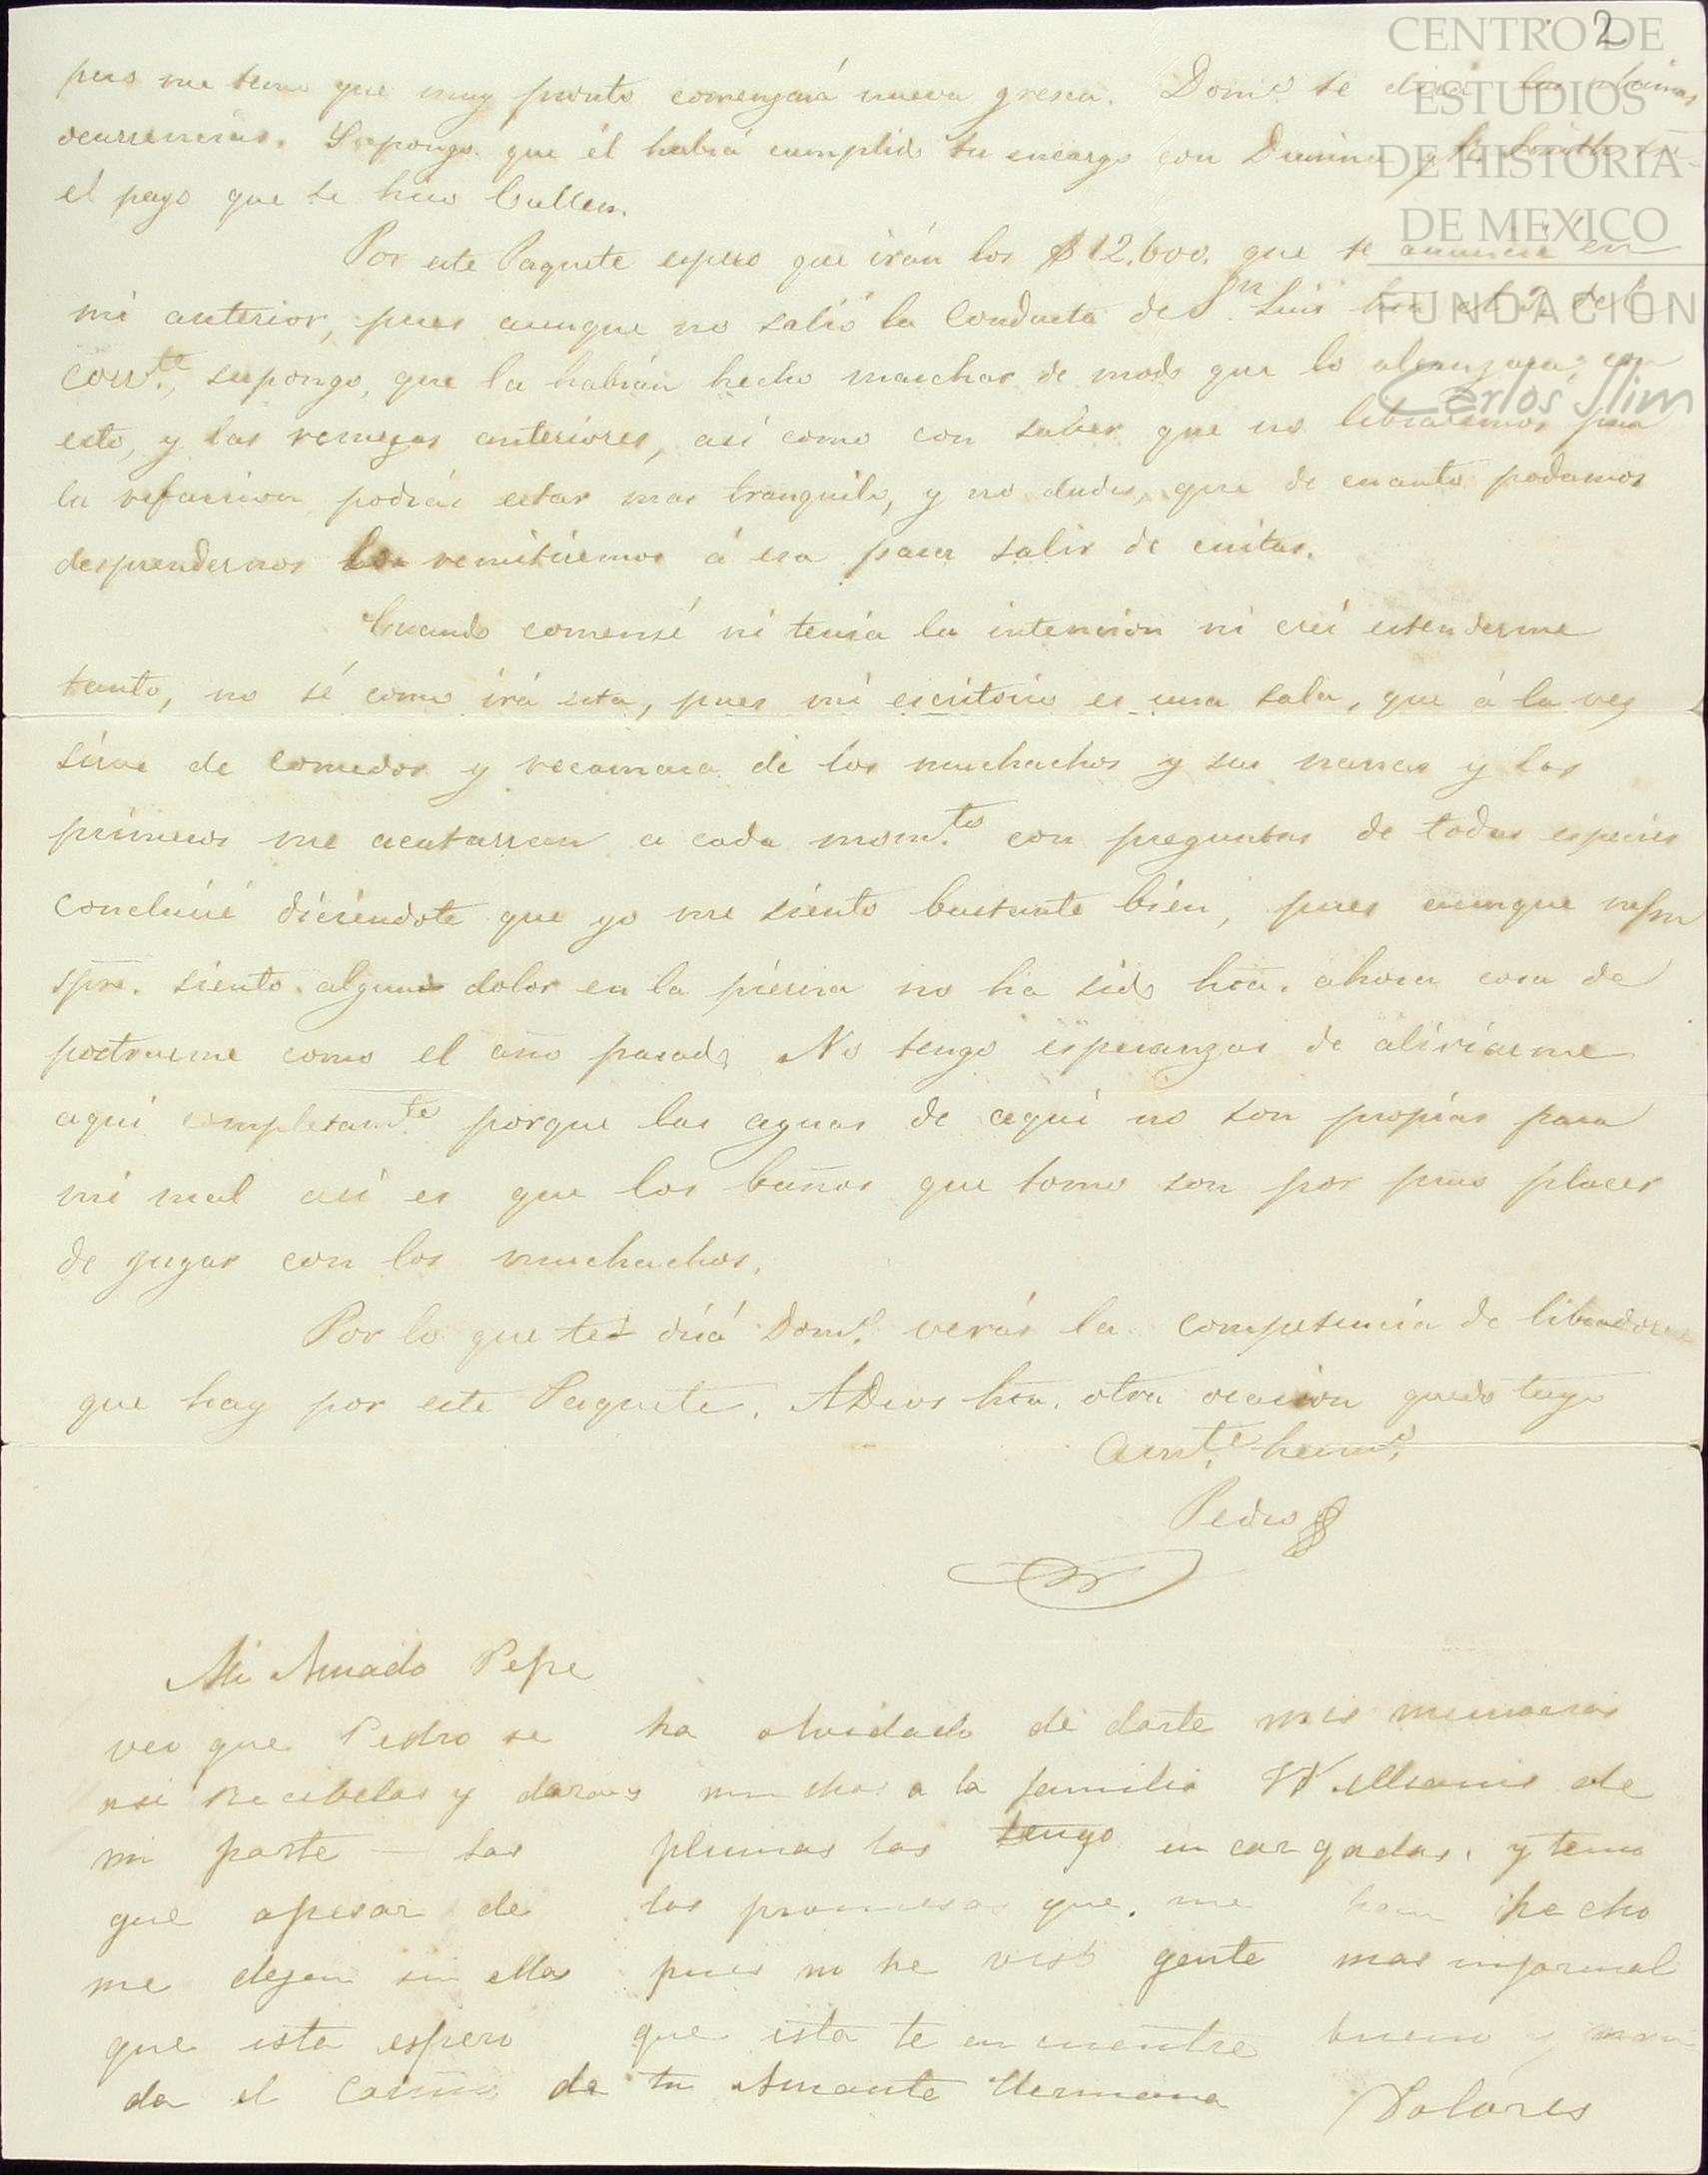 2
CENTRO DE
ESTUDIOS
DE HISTORIA
DE MEXICO
FUNDACION
Carlos Slim
pero me temo que muy pronto comenzará nueva gresca. Dom.º te dirá las ultimas
ocurrencias. Supongo que él habrá cumplido tu encargo con Smith
el pago que te hizo Cullen.
Por este Paquete espero que irán los $12.600. que te anuncié en
mi anterior, pues aunque no salió la Conducta de Sn Luis hta el 2 del
corr.te, supongo, que la habrán hecho marchar de modo que lo alcanzara; con
esto, y las remezas anteriores, así como con saber que no libraremos para
la refaccion podrás estar mas tranquilo, y no dudes, que de cuanto podamos
desprendernos remitiremos á esa para salir de cuitas.
Cuando comensé ni tenia la intencion ni creí estenderme
tanto, no sé como irá esta, pues mi escritorio es una sala, que á la vez
sirve de comedor y recamara de los muchachos y sus nanas y los
primeros me acatarran a cada mom.to con preguntas de todas especies
concluiré diciéndote que yo me siento bastante bien, pues aunque
spre. siento algun dolor en la pierna no ha sido hta. ahora cosa de
postrarme como el año pasado. No tengo esperanzas de aliviarme
aquí completam.te porque las aguas de aquí no son propias para
mi mal así es que los baños que tomo son por puro placer
de jugar con los muchachos.
Por lo que te dirá Dom.º verás la competencia de libradores
que hay por este Paquete. A Dios hta. otra ocasion quedo tuyo
Amt.e herm.º
Pedro
Mi Amado Pepe
veo que Pedro se ha olvidado de darte mis memorias
asi recibelas y daras muchas a la familia Williams de
mi parte — las plumas las tengo encargadas, y temo
que apesar de las promesas que me han hecho
me dejen sin ellas pues no he visto gente mas informal
que esta espero que esta te encuentre bueno y man
da el cariño de tu Amante Hermana Dolores